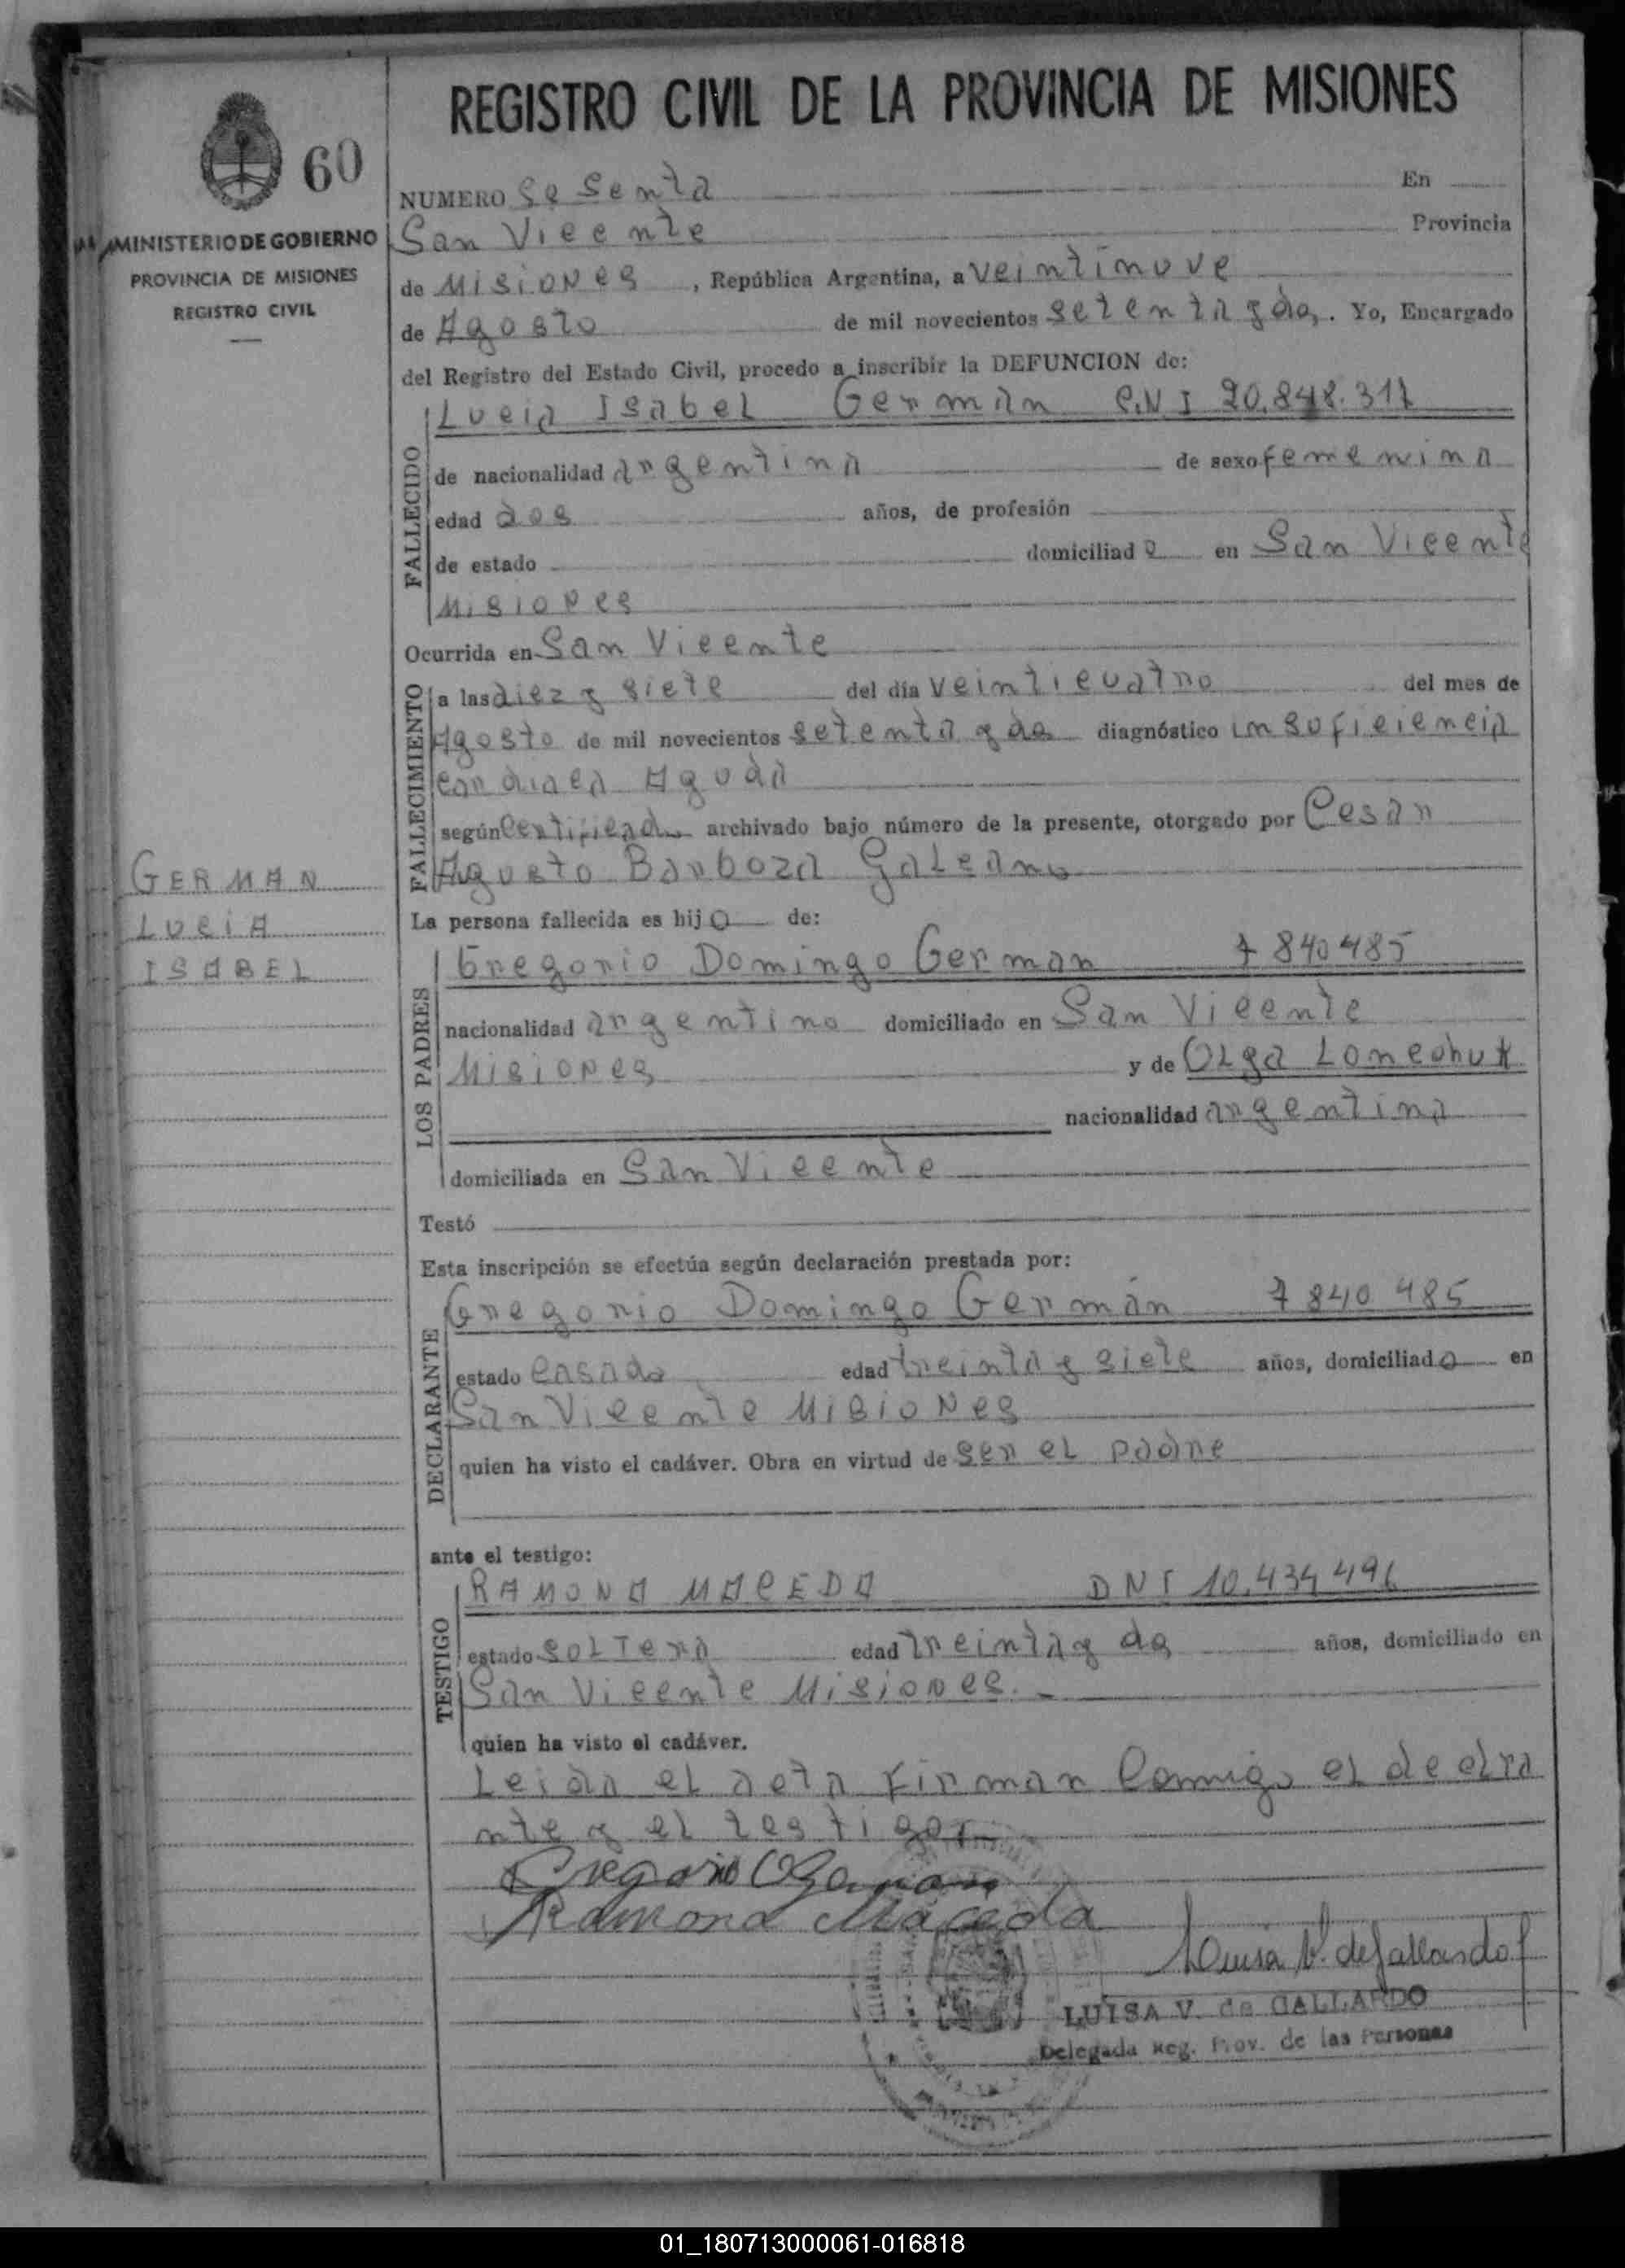 REGISTRO CIVIL DE LA PROVINCIA DE MISIONES
60
MINISTERIO DE GOBIERNO
PROVINCIA DE MISIONES
REGISTRO CIVIL
NUMERO Sesenta En
San Vicente Provincia
de Misiones, República Argentina, a veintinuve
de Agosto de mil novecientos setenta y dos. Yo, Encargado
del Registro del Estado Civil, procedo a inscribir la DEFUNCION de:
Lucia Isabel German 20.848.317
FALLECIDO
de nacionalidad argentina de sexo femenina
edad dos años, de profesión
de estado domiciliad a en San Vicente
Misiones
Ocurrida en San Vicente
FALLECIMIENTO
a las diez y siete del día veinticuatro del mes de
Agosto de mil novecientos setenta y dos diagnóstico insuficiencia
cardiaca Aguda
según Certificado archivado bajo número de la presente, otorgado por Cesar
Agusto Barboza Galeano
GERMAN
LUCIA
ISABEL
La persona fallecida es hij a de:
LOS PADRES
Gregorio Domingo German 7 840 485
nacionalidad argentino domiciliado en San Vicente
Misiones y de Olga
nacionalidad argentina
domiciliada en San Vicente
Testó
Esta inscripción se efectúa según declaración prestada por:
DECLARANTE
Gregorio Domingo German 7 840 485
estado casado edad treinta y siete años, domiciliad o en
San Vicente Misiones
quien ha visto el cadáver. Obra en virtud de ser el padre
ante el testigo:
TESTIGO
RAMONA MACEDA DNI 10.434 496
estado soltera edad treinta y dos años, domiciliado en
San Vicente Misiones. -
quien ha visto el cadáver.
Leida el acta firman Conmigo el declra
nte y el testigo
Gregorio German
Ramona Maceda
Luisa V. de Gallardo
LUISA V. de GALLARDO
Delegada Reg. Prov. de las Personas
01_180713000061-016818